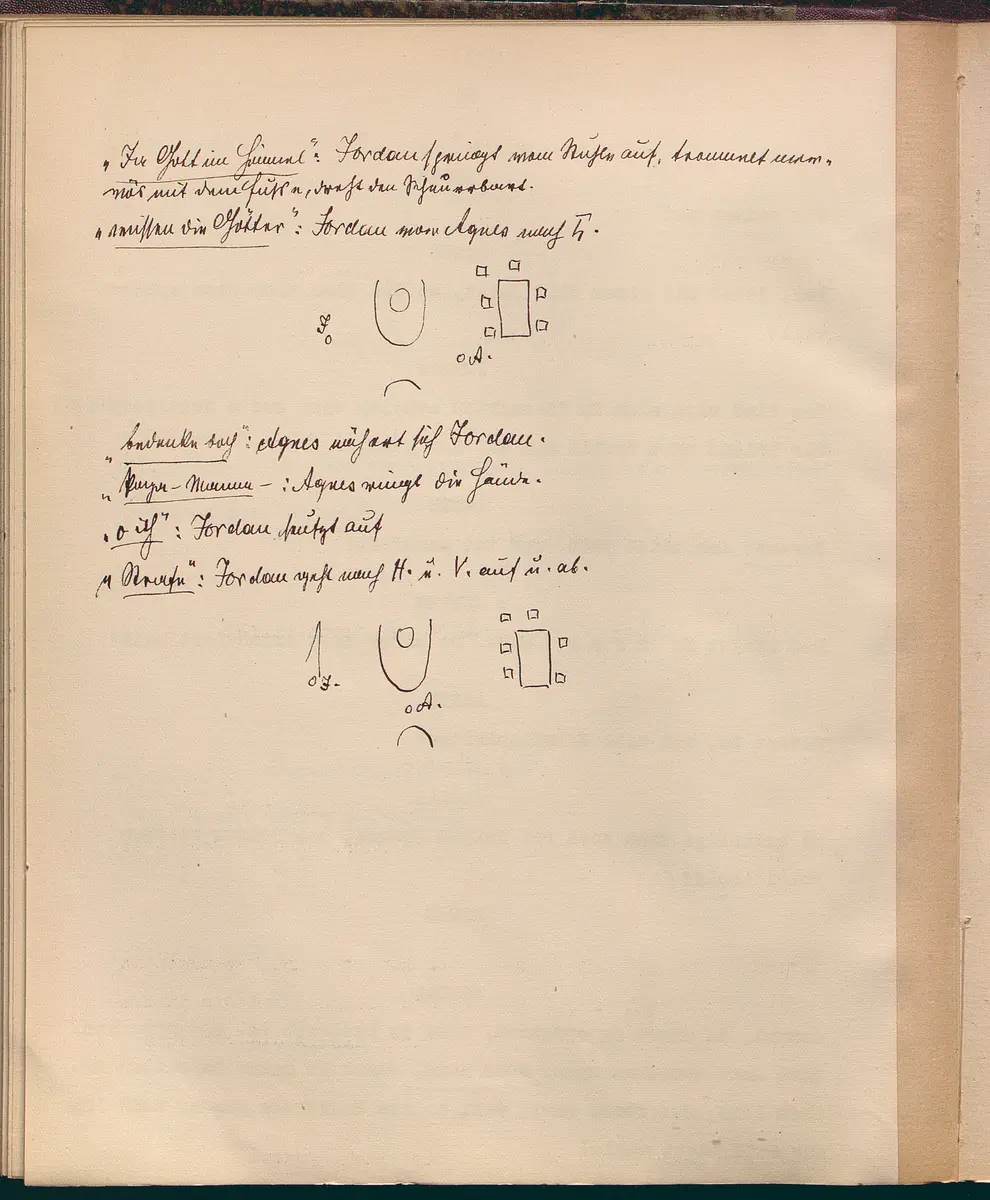 „Ja Gott im Himmel“: Jordan springt vom Stuhle auf, trommelt ner-
vös mit dem Fusse, dreht den Schnurrbart.
„wissen die Götter“: Jordan von Agnes nach
J.
A.
„bedenke doch“: Agnes nähert sich Jordan.
„Papa-Mama – : Agnes ringt die Hände.
„o ich“: Jordan seufzt auf
„Strafe“: Jordan geht nach H. u. V. auf u. ab.
J.
A.